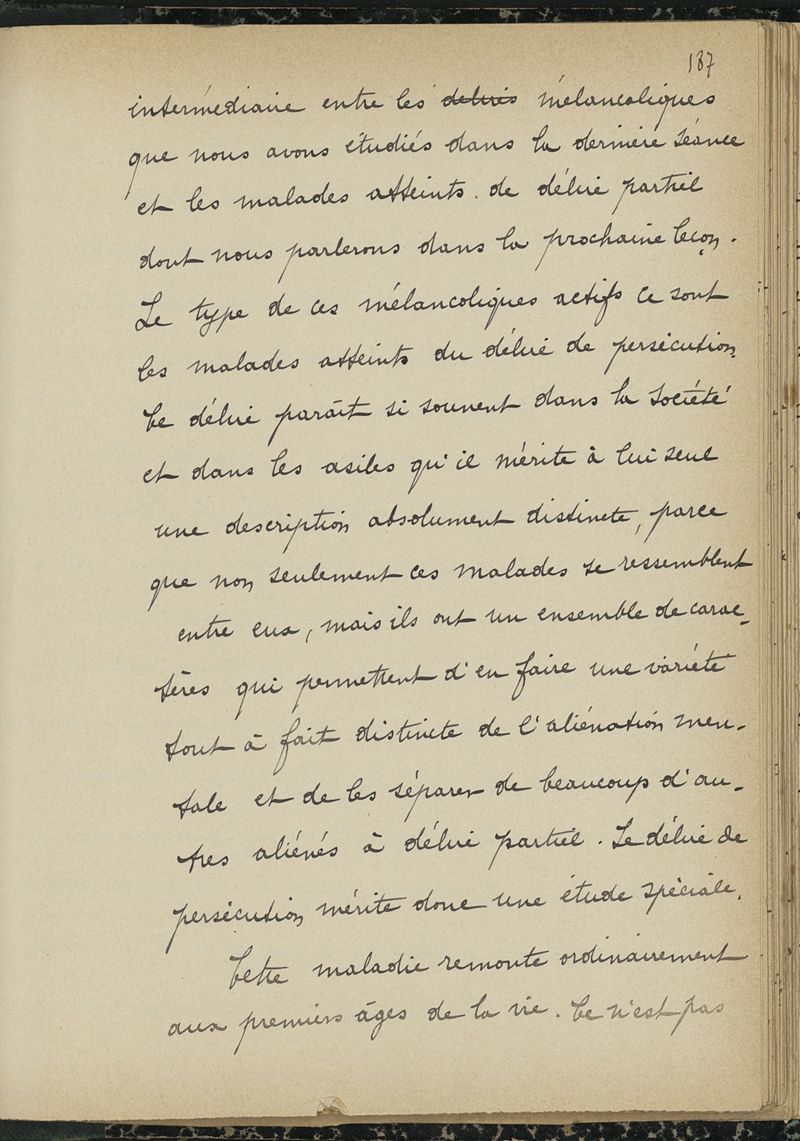 187
intermédiaire entre les délires mélancoliques
que nous avons étudiés dans la dernière séance
et les malades atteints de délire partiel
dont nous parlerons dans la prochaine leçon.
Le type de ces mélancoliques actifs ce sont
les malades atteints du délire de persécution.
Ce délire paraît si souvent dans la société
et dans les asiles qu'il mérite à lui seul
une description absolument distincte, parce
que non seulement ces malades se ressemblent
entre eux, mais ils ont un ensemble de carac-
tères qui permettent d'en faire une variété
tout à fait distincte de l'aliénation men-
tale et de les séparer de beaucoup d'au-
tres aliénés à délire partiel. Le délire de
persécution mérite donc une étude spéciale.
Cette maladie remonte ordinairement
aux premiers âges de la vie. Ce n'est pas